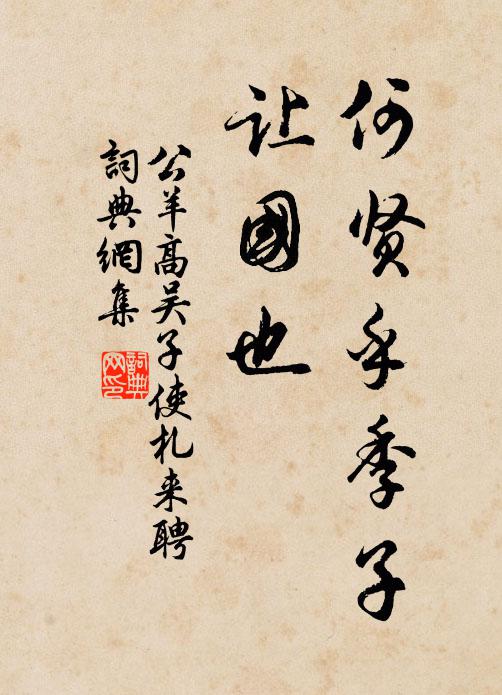 何贤乎季子
让國也
公羊高吴子使札来聘
詞典網集
詞典
网印